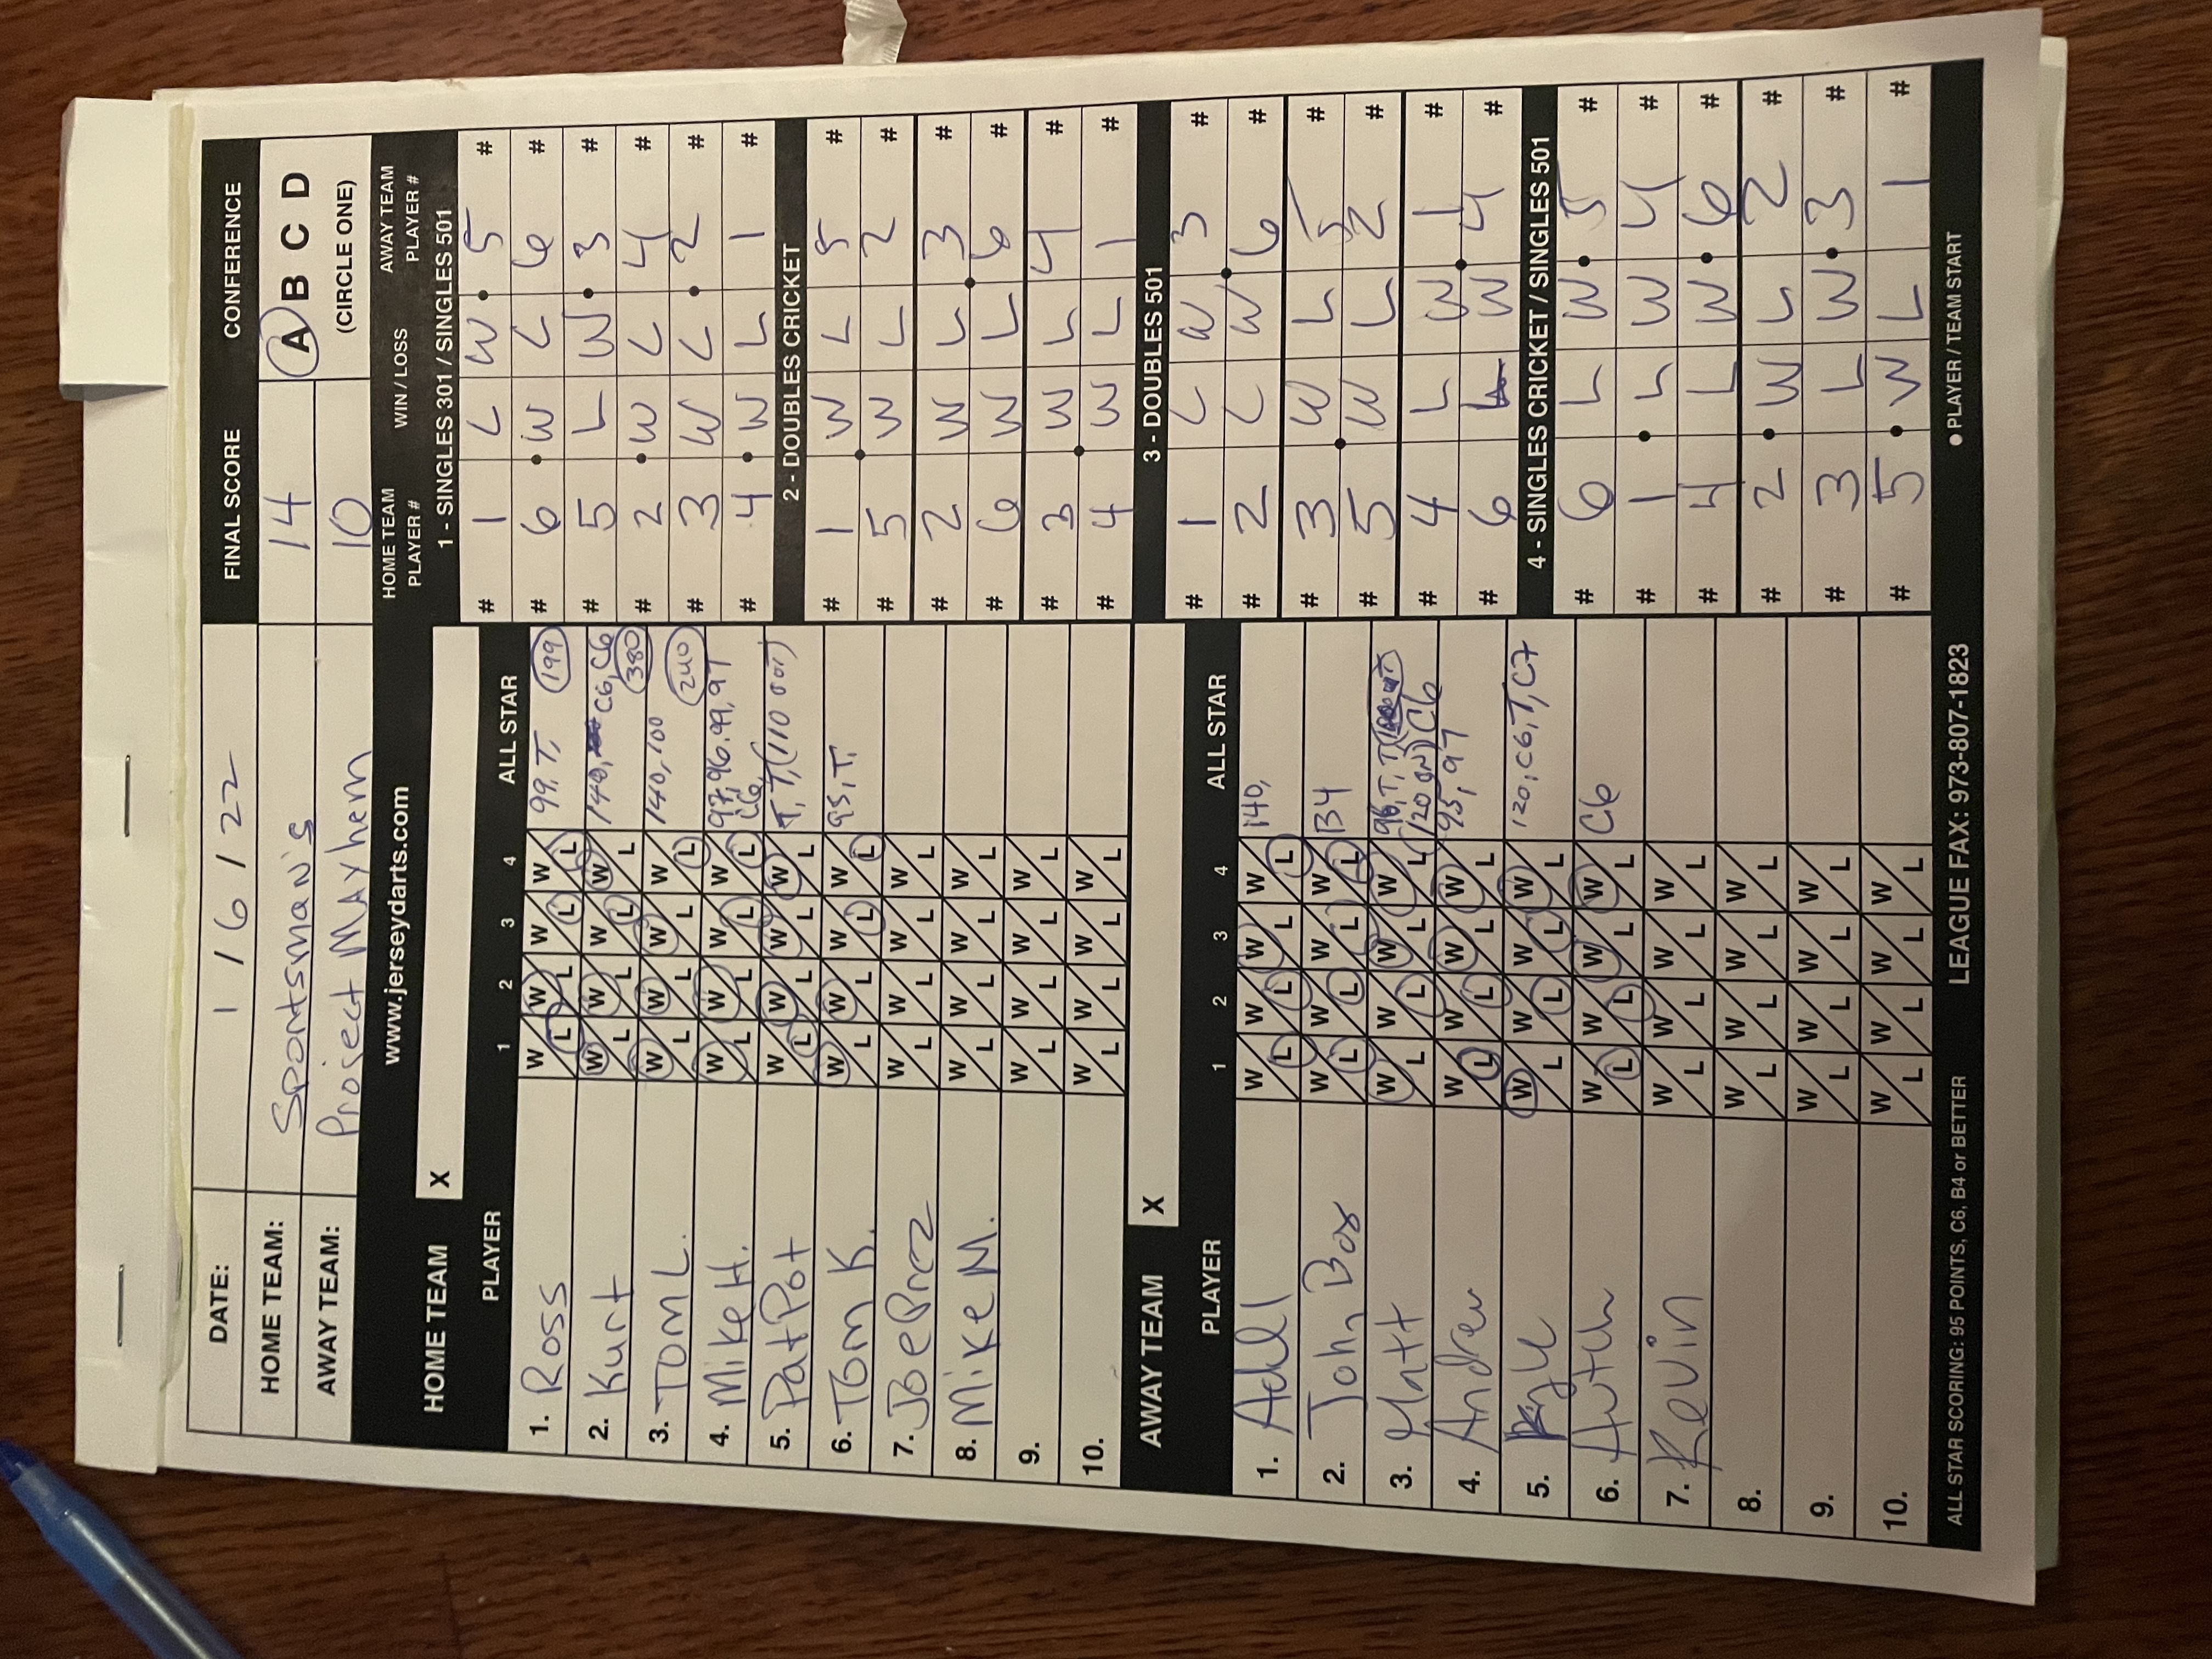 DATE: 1/6/22 FINAL SCORE CONFERENCE
HOME TEAM: Sportsman's 14 A B C D
AWAY TEAM: Project MAYhem 10 (CIRCLE ONE)
www.jerseydarts.com
HOME TEAM X
PLAYER 1 2 3 4 ALL STAR
1. Ross W L W L W L W L 99, T, 199
2. Kurt W L W L W L W L 140, C6, C6 380
3. TOM L. W L W L W L W L 140, 100 240
4. Mike H. W L W L W L W L 97, 96, 99, 97 C6,
5. Pat Pot W L W L W L W L T, T, (110 out)
6. Tom K. W L W L W L W L 95, T,
7. Joe Prez W L W L W L W L
8. Mike M. W L W L W L W L
9. W L W L W L W L
10. W L W L W L W L
AWAY TEAM X
PLAYER 1 2 3 4 ALL STAR
1. W L W L W L W L 140,
2. John Box W L W L W L W L B4
3. Matt W L W L W L W L 96, T, T, (120 ON) C6
4. Andrew W L W L W L W L 95, 97
5. Kyle W L W L W L W L 120, C6, T, C7
6. W L W L W L W L C6
7. Kevin W L W L W L W L
8. W L W L W L W L
9. W L W L W L W L
10. W L W L W L W L
HOME TEAM PLAYER # WIN / LOSS AWAY TEAM PLAYER #
1 - SINGLES 301 / SINGLES 501
# 1 L W 5 #
# 6 W L 6 #
# 5 L W 3 #
# 2 W L 4 #
# 3 W L 2 #
# 4 W L 1 #
2 - DOUBLES CRICKET
# 1 W L 5 #
# 5 W L 2 #
# 2 W L 3 #
# 6 W L 6 #
# 3 W L 4 #
# 4 W L 1 #
3 - DOUBLES 501
# 1 L W 3 #
# 2 L W 6 #
# 3 W L 5 #
# 5 W L 2 #
# 4 L W 1 #
# 6 L W 4 #
4 - SINGLES CRICKET / SINGLES 501
# 6 L W 5 #
# 1 L W 4 #
# 4 L W 6 #
# 2 W L 2 #
# 3 L W 3 #
# 5 W L 1 #
ALL STAR SCORING: 95 POINTS, C6, B4 or BETTER LEAGUE FAX: 973-807-1823 ● PLAYER / TEAM START